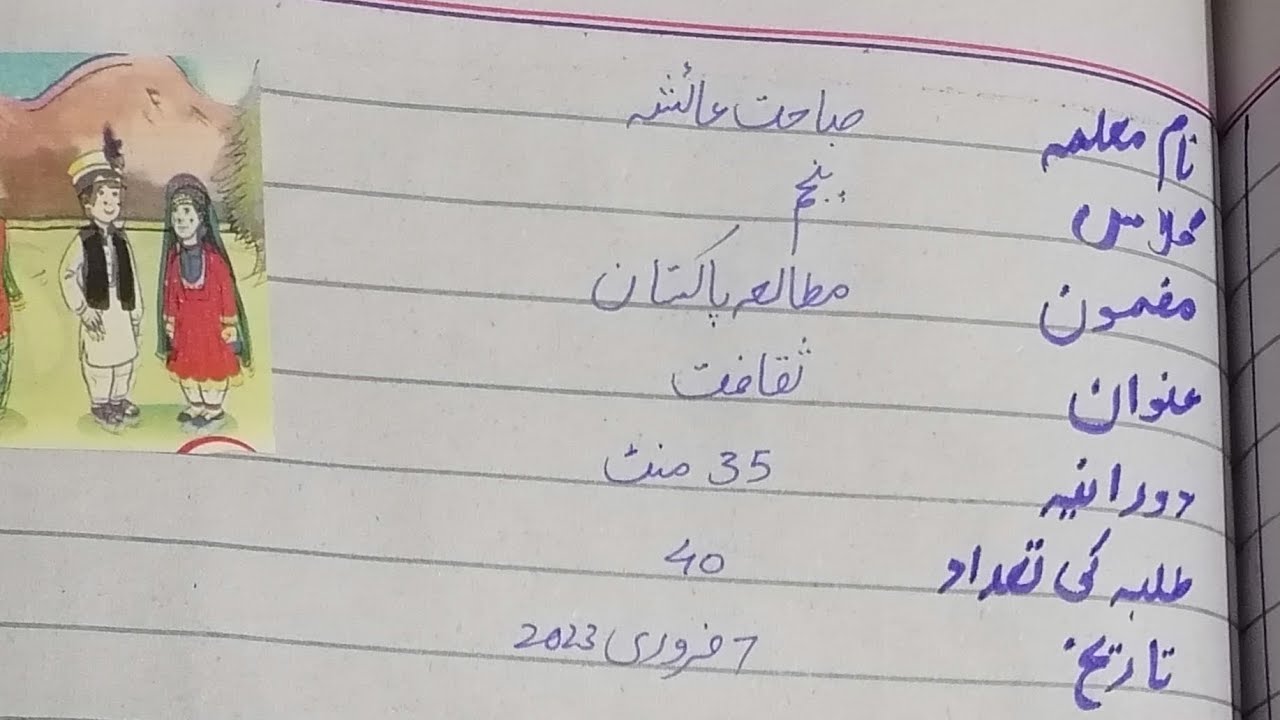 نام معلمہ صباحت عائشہ
کلاس پنجم
مضمون مطالعہ پاکستان
عنوان ثقافت
دورانیہ 35 منٹ
طلبہ کی تعداد 40
تاریخ 7 فروری 2023